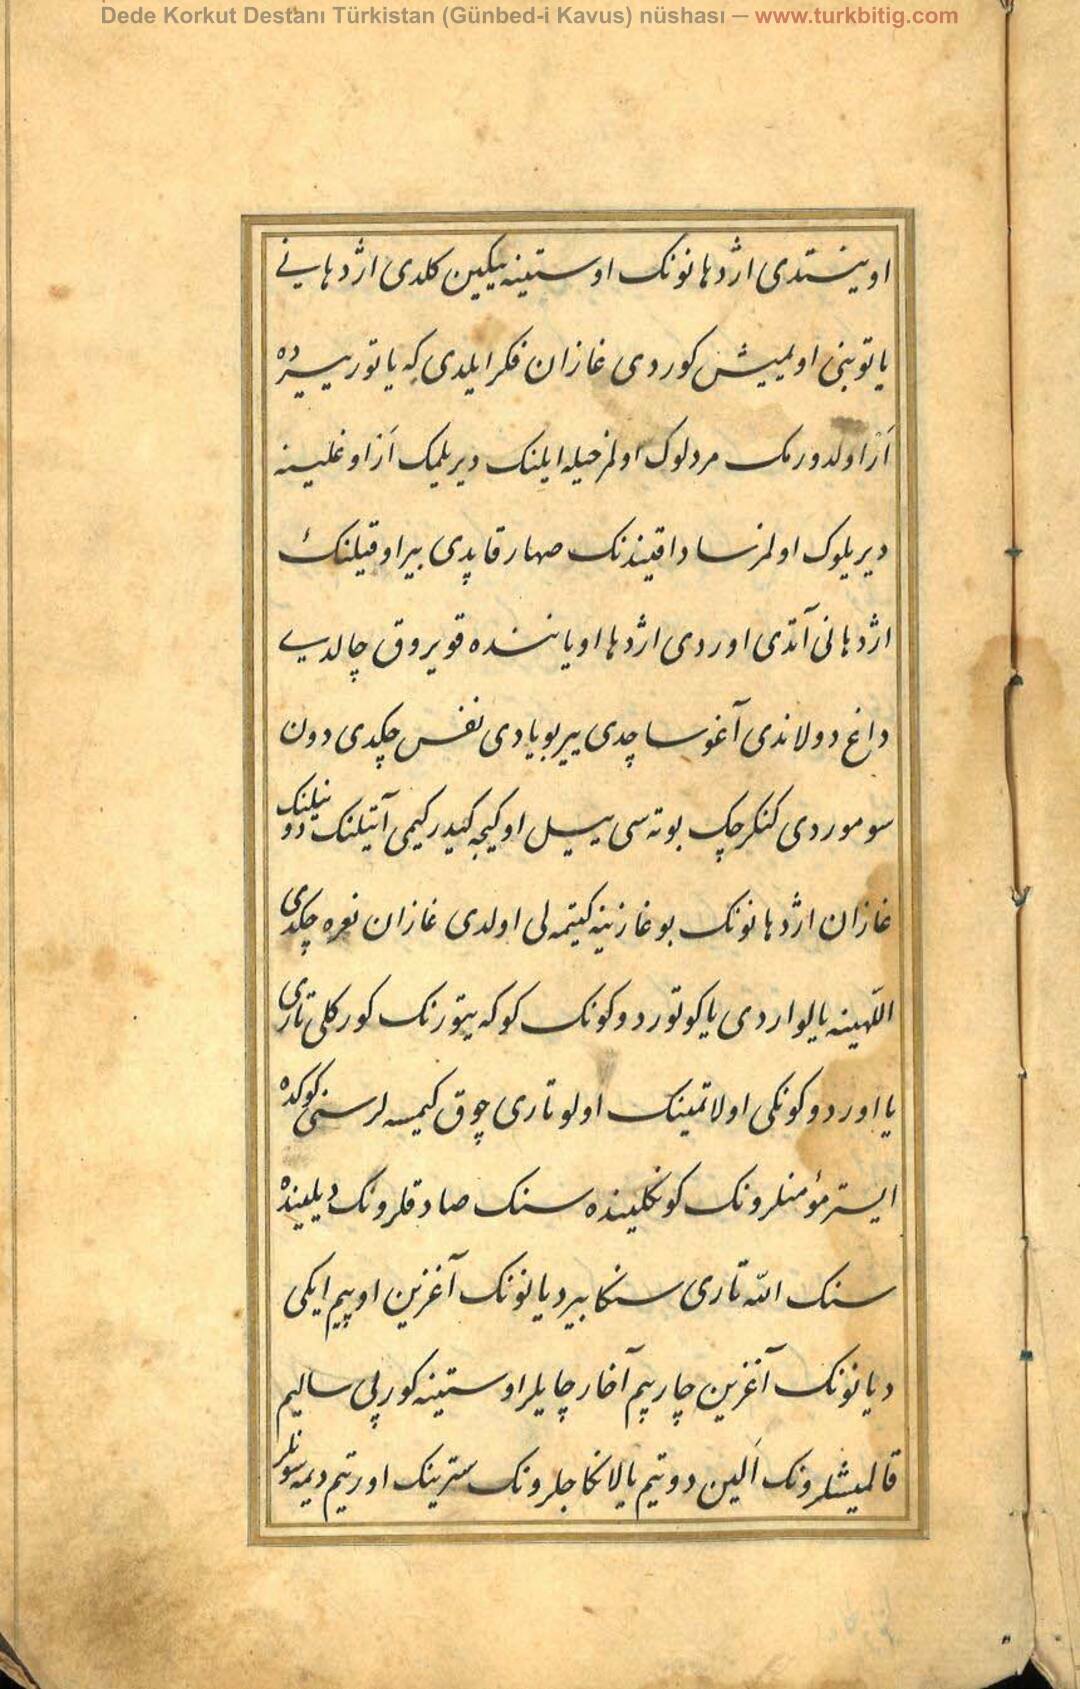 Dede Korkut Destanı Türkistan (Günbed-i Kavus) nüshası — www.turkbitig.com
اوینستدی اژدهانونک اوستینه ییکین کلدی اژدهانی
یاتوبنی اولمیش کوردی غازان فکر ایلدی که یاتور ییرده
اَژ اولدورمک مردلوک اولمز حیله ایلنک دیریلمک اَژ اوغلینه
دیریلوک اولمز ساداقیندنک صهار قاپدی بیر اوقیلنک
اژدهانی آتدی اوردی اژدها اویاننده قویروق چالدی
داغ دولاندی آغو ساچدی ییر بویادی نفس چکدی دون
سوموردی کنکرچک بوته سی ییل اوکیجه کیدر کیمی آتیلنک دونیلنک
غازان اژدهانونک بوغازینه کیتمه لی اولدی غازان نعره چکدی
اللهینه یالواردی یا کوتوردوکونک کوکه یتورنک کورکلی تاری
یا اوردوکونکی اولاتمینک اولو تاری چوق کیمسه لر سنی کوکده
ایستر مؤمنلرونک کونکلینده سنک صادقلرونک دیلینده
سنک الله تاری سنکا بیر دیانونک آغزین اوپیم ایکی
دیانونک آغزین چارپیم آخار چایلر اوستینه کورپی سالیم
قالمیشلرونک اَلین دوتیم یالانکاجلرونک سترینک اورتیم دیمه سونلر